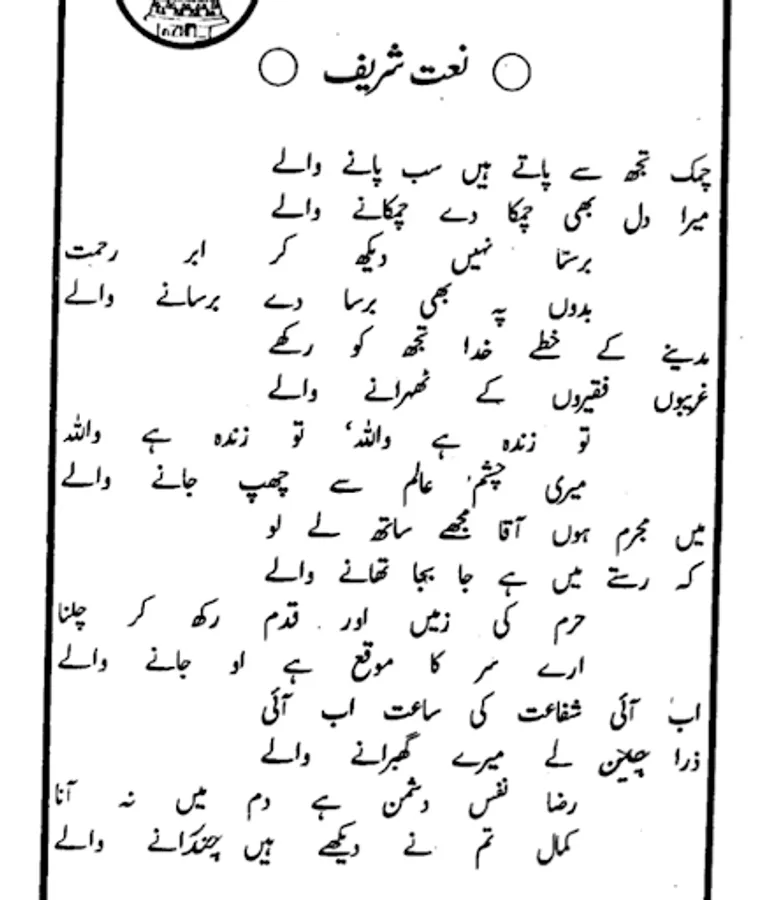 نعت شریف
چمک تجھ سے پاتے ہیں سب پانے والے
میرا دل بھی چمکا دے چمکانے والے
برستا نہیں دیکھ کر ابر رحمت
بدوں پہ بھی برسا دے برسانے والے
مدینے کے خطے خدا تجھ کو رکھے
غریبوں فقیروں کے ٹھرانے والے
تو زندہ ہے واللہ، تو زندہ ہے واللہ
میری چشم عالم سے چھپ جانے والے
میں مجرم ہوں آقا مجھے ساتھ لے لو
کہ رستے میں ہے جا بجا تھانے والے
حرم کی زمیں اور قدم رکھ کر چلنا
ارے سر کا موقع ہے او جانے والے
اب آئی شفاعت کی ساعت اب آئی
ذرا چین لے میرے گھبرانے والے
رضا نفس دشمن ہے دم میں نہ آنا
کمال تم نے دیکھے ہیں چندرانے والے